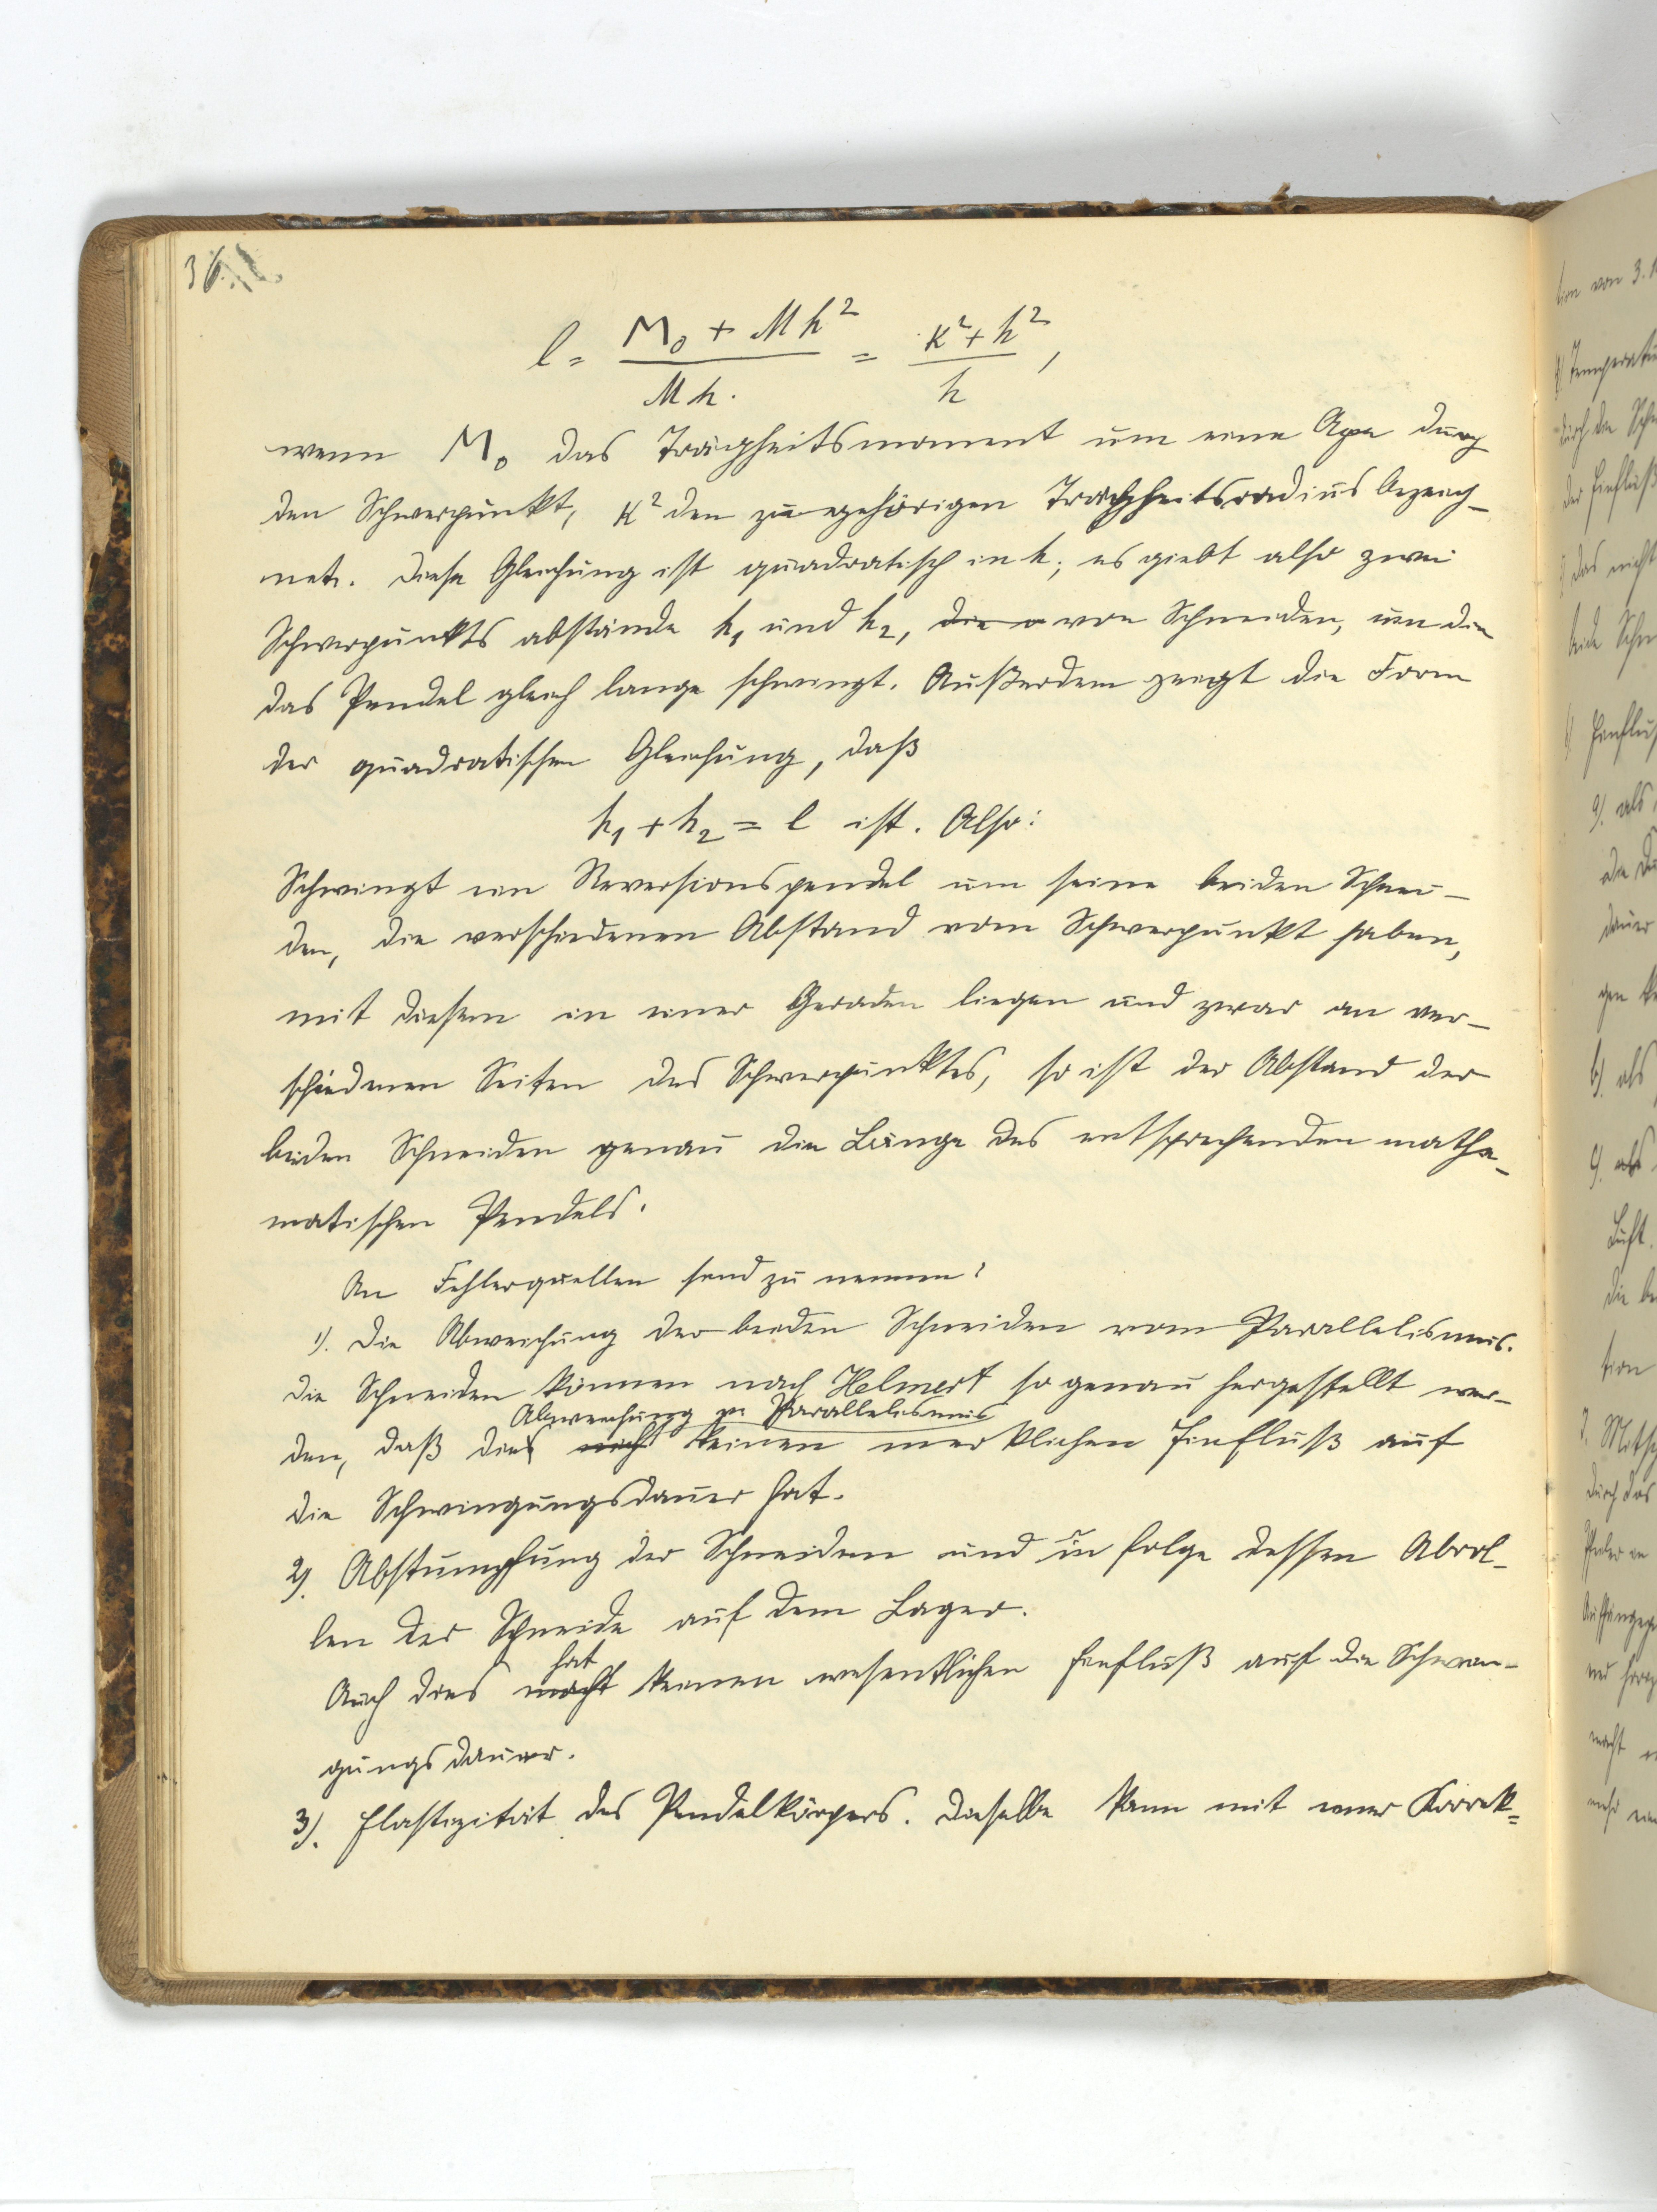 36.
l = (M₀ + Mh²) / (Mh.) = (κ² + h²) / h ,
wenn M₀ das Trägheitsmoment um eine Axe durch
den Schwerpunkt, κ² den zugehörigen Trägheitsradius bezeich-
net. Diese Gleichung ist quadratisch in h; es giebt also zwei
Schwerpunktsabstände h₁ und h₂, die von Schneiden, um die
das Pendel gleich lange schwingt. Außerdem zeigt die Form
der quadratischen Gleichung, daß
h₁ + h₂ = l ist. Also:
Schwingt ein Reversionspendel um seine beiden Schnei-
den, die verschiedenen Abstand vom Schwerpunkt haben,
mit diesem in einer Geraden liegen und zwar an ver-
schiedenen Seiten des Schwerpunktes, so ist der Abstand der
beiden Schneiden genau die Länge des entsprechenden mathe-
matischen Pendels.
An Fehlerquellen sind zu nennen:
1). Die Abweichung der beiden Schneiden vom Parallelismus.
Die Schneiden können nach Helmert so genau hergestellt wer-
Abweichung v. Parallelismus
den, daß dies nicht keinen merklichen Einfluß auf
die Schwingungsdauer hat.
2). Abstumpfung der Schneiden und in folge dessen Abrol-
len der Schneide auf dem Lager.
hat
Auch dies macht keinen wesentlichen Einfluß auf die Schwin-
gungsdauer.
3). Elastizität des Pendelkörpers. Dieselbe kann mit einer Korrek-
tion von 3.
Temperatu
durch die Schn
der Einfluß
das nicht
beide Schn
Einflus
a). als
dauer
b). als
c). als
Luft.
die be
tion
7. Mitsch
durch das
macht
mehr